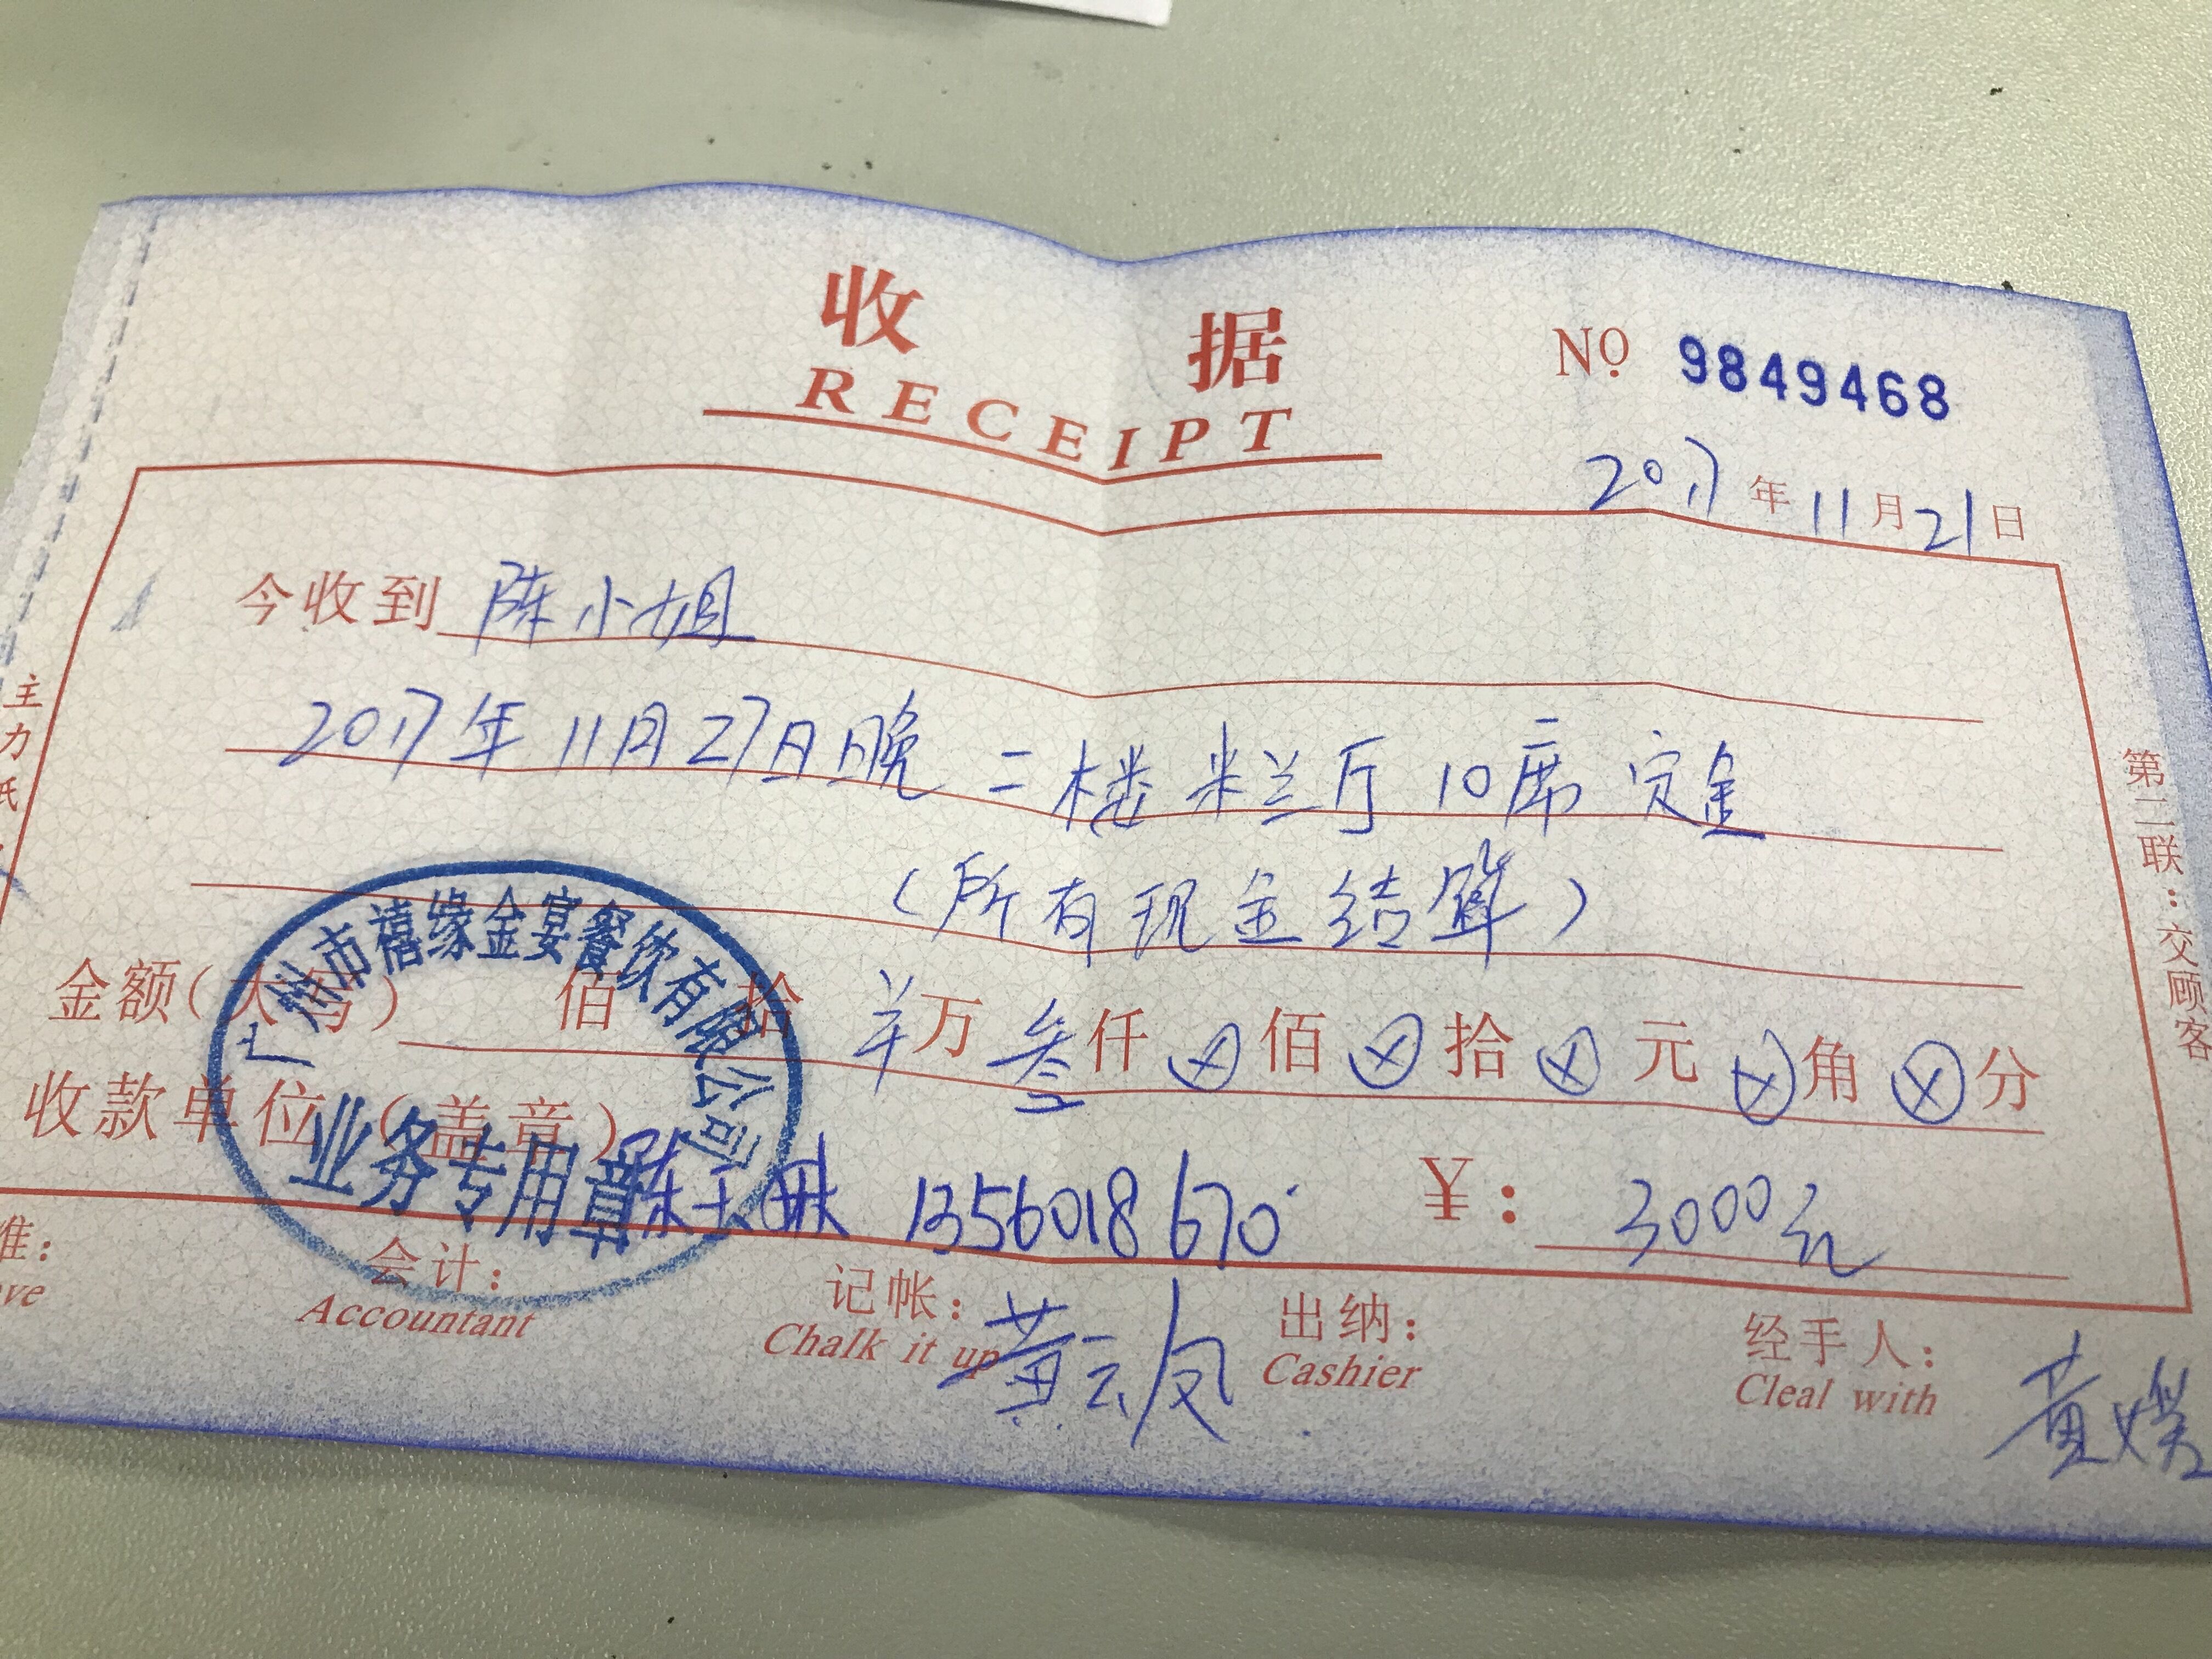 收 据
RECEIPT
NO 9849468
2017年11月21日
今收到 陈小姐
2017年11月27日晚 二楼米兰厅 10席 定金
(所有现金结算)
金额(大写) 佰 拾 ¥万 叁仟 ⊗佰 ⊗拾 ⊗元 ⊗角 ⊗分
收款单位(盖章) 1356018670 ¥: 3000元
广州市禧缘金宴餐饮有限公司
业务专用章
准: 会计: 记帐: 黄云凤 出纳: 经手人: 黄
ve Accountant Chalk it up Cashier Cleal with
第二联:交顾客
主力纸